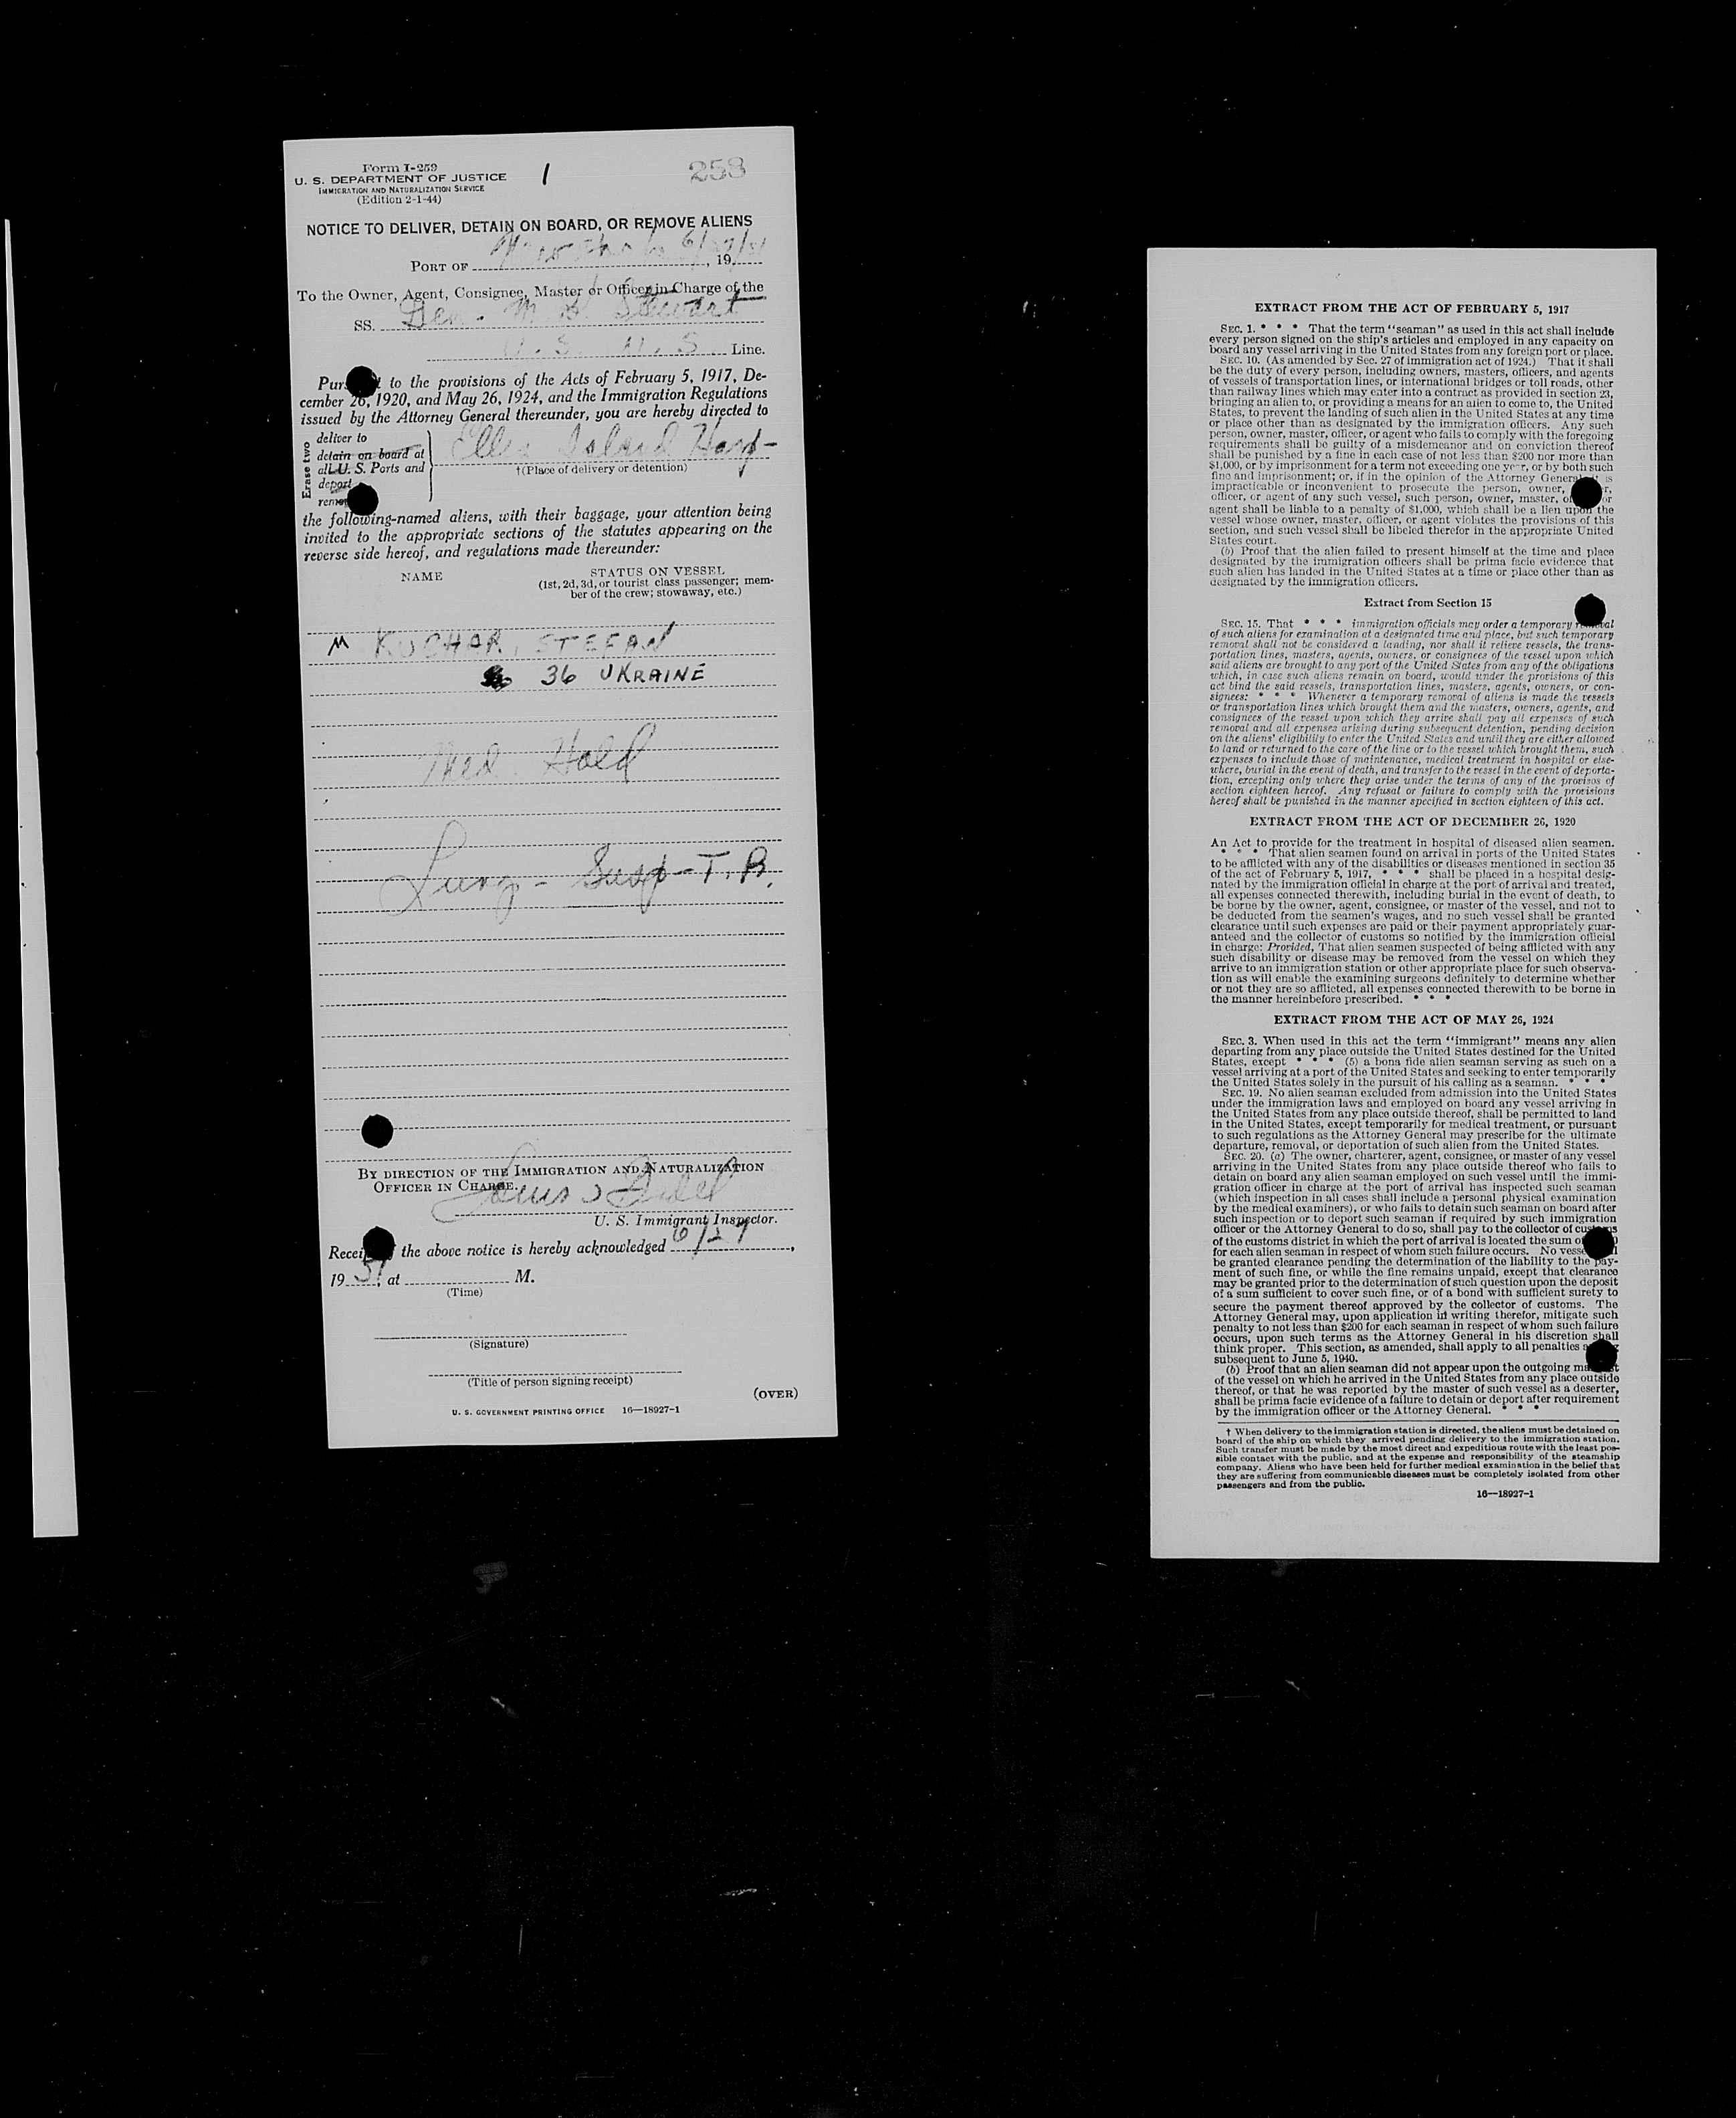 Form I-259
U. S. DEPARTMENT OF JUSTICE
IMMIGRATION AND NATURALIZATION SERVICE
(Edition 2-1-44)
1
258
NOTICE TO DELIVER, DETAIN ON BOARD, OR REMOVE ALIENS
PORT OF New York 6/27/51, 19
To the Owner, Agent, Consignee, Master or Officer in Charge of the
SS. Gen. M. B. Stewart
U. S. N. S Line.
to the provisions of the Acts of February 5, 1917, De-
cember 26, 1920, and May 26, 1924, and the Immigration Regulations
issued by the Attorney General thereunder, you are hereby directed to
Erase two
deliver to
detain on board at
all U. S. Ports and
deport
Ellis Island Hosp-
†(Place of delivery or detention)
the following-named aliens, with their baggage, your attention being
invited to the appropriate sections of the statutes appearing on the
reverse side hereof, and regulations made thereunder:
NAME
STATUS ON VESSEL
(1st, 2d, 3d, or tourist class passenger; mem-
ber of the crew; stowaway, etc.)
M KUCHAR, STEFAN
36 UKRAINE
Med. Hold
Lung - Susp - T. B.
BY DIRECTION OF THE IMMIGRATION AND NATURALIZATION
OFFICER IN CHARGE.
U. S. Immigrant Inspector.
the above notice is hereby acknowledged 6/27,
19 51, at M.
(Time)
(Signature)
(Title of person signing receipt)
(OVER)
U. S. GOVERNMENT PRINTING OFFICE 16—18927-1
EXTRACT FROM THE ACT OF FEBRUARY 5, 1917
SEC. 1. * * * That the term "seaman" as used in this act shall include
every person signed on the ship's articles and employed in any capacity on
board any vessel arriving in the United States from any foreign port or place.
SEC. 10. (As amended by Sec. 27 of immigration act of 1924.) That it shall
be the duty of every person, including owners, masters, officers, and agents
of vessels of transportation lines, or international bridges or toll roads, other
than railway lines which may enter into a contract as provided in section 23,
bringing an alien to, or providing a means for an alien to come to, the United
States, to prevent the landing of such alien in the United States at any time
or place other than as designated by the immigration officers. Any such
person, owner, master, officer, or agent who fails to comply with the foregoing
requirements shall be guilty of a misdemeanor and on conviction thereof
shall be punished by a fine in each case of not less than $200 nor more than
$1,000, or by imprisonment for a term not exceeding one year, or by both such
fine and imprisonment; or, if in the opinion of the Attorney General it is
impracticable or inconvenient to prosecute the person, owner,
officer, or agent of any such vessel, such person, owner, master, or
agent shall be liable to a penalty of $1,000, which shall be a lien upon the
vessel whose owner, master, officer, or agent violates the provisions of this
section, and such vessel shall be libeled therefor in the appropriate United
States court.
(b) Proof that the alien failed to present himself at the time and place
designated by the immigration officers shall be prima facie evidence that
such alien has landed in the United States at a time or place other than as
designated by the immigration officers.
Extract from Section 15
SEC. 15. That * * * immigration officials may order a temporary removal
of such aliens for examination at a designated time and place, but such temporary
removal shall not be considered a landing, nor shall it relieve vessels, the trans-
portation lines, masters, agents, owners, or consignees of the vessel upon which
said aliens are brought to any port of the United States from any of the obligations
which, in case such aliens remain on board, would under the provisions of this
act bind the said vessels, transportation lines, masters, agents, owners, or con-
signees: * * * Whenever a temporary removal of aliens is made the vessels
or transportation lines which brought them and the masters, owners, agents, and
consignees of the vessel upon which they arrive shall pay all expenses of such
removal and all expenses arising during subsequent detention, pending decision
on the aliens' eligibility to enter the United States and until they are either allowed
to land or returned to the care of the line or to the vessel which brought them, such
expenses to include those of maintenance, medical treatment in hospital or else-
where, burial in the event of death, and transfer to the vessel in the event of deporta-
tion, excepting only where they arise under the terms of any of the provisos of
section eighteen hereof. Any refusal or failure to comply with the provisions
hereof shall be punished in the manner specified in section eighteen of this act.
EXTRACT FROM THE ACT OF DECEMBER 26, 1920
An Act to provide for the treatment in hospital of diseased alien seamen.
* * * That alien seamen found on arrival in ports of the United States
to be afflicted with any of the disabilities or diseases mentioned in section 35
of the act of February 5, 1917, * * * shall be placed in a hospital desig-
nated by the immigration official in charge at the port of arrival and treated,
all expenses connected therewith, including burial in the event of death, to
be borne by the owner, agent, consignee, or master of the vessel, and not to
be deducted from the seamen's wages, and no such vessel shall be granted
clearance until such expenses are paid or their payment appropriately guar-
anteed and the collector of customs so notified by the immigration official
in charge: Provided, That alien seamen suspected of being afflicted with any
such disability or disease may be removed from the vessel on which they
arrive to an immigration station or other appropriate place for such observa-
tion as will enable the examining surgeons definitely to determine whether
or not they are so afflicted, all expenses connected therewith to be borne in
the manner hereinbefore prescribed. * * *
EXTRACT FROM THE ACT OF MAY 26, 1924
SEC. 3. When used in this act the term "immigrant" means any alien
departing from any place outside the United States destined for the United
States, except * * * (5) a bona fide alien seaman serving as such on a
vessel arriving at a port of the United States and seeking to enter temporarily
the United States solely in the pursuit of his calling as a seaman. * * *
SEC. 19. No alien seaman excluded from admission into the United States
under the immigration laws and employed on board any vessel arriving in
the United States from any place outside thereof, shall be permitted to land
in the United States, except temporarily for medical treatment, or pursuant
to such regulations as the Attorney General may prescribe for the ultimate
departure, removal, or deportation of such alien from the United States.
SEC. 20. (a) The owner, charterer, agent, consignee, or master of any vessel
arriving in the United States from any place outside thereof who fails to
detain on board any alien seaman employed on such vessel until the immi-
gration officer in charge at the port of arrival has inspected such seaman
(which inspection in all cases shall include a personal physical examination
by the medical examiners), or who fails to detain such seaman on board after
such inspection or to deport such seaman if required by such immigration
officer or the Attorney General to do so, shall pay to the collector of customs
of the customs district in which the port of arrival is located the sum of
for each alien seaman in respect of whom such failure occurs. No vessel
be granted clearance pending the determination of the liability to the pay-
ment of such fine, or while the fine remains unpaid, except that clearance
may be granted prior to the determination of such question upon the deposit
of a sum sufficient to cover such fine, or of a bond with sufficient surety to
secure the payment thereof approved by the collector of customs. The
Attorney General may, upon application in writing therefor, mitigate such
penalty to not less than $200 for each seaman in respect of whom such failure
occurs, upon such terms as the Attorney General in his discretion shall
think proper. This section, as amended, shall apply to all penalties
subsequent to June 5, 1940.
(b) Proof that an alien seaman did not appear upon the outgoing manifest
of the vessel on which he arrived in the United States from any place outside
thereof, or that he was reported by the master of such vessel as a deserter,
shall be prima facie evidence of a failure to detain or deport after requirement
by the immigration officer or the Attorney General. * * *
† When delivery to the immigration station is directed, the aliens must be detained on
board of the ship on which they arrived pending delivery to the immigration station.
Such transfer must be made by the most direct and expeditious route with the least pos-
sible contact with the public, and at the expense and responsibility of the steamship
company. Aliens who have been held for further medical examination in the belief that
they are suffering from communicable diseases must be completely isolated from other
passengers and from the public.
16—18927-1